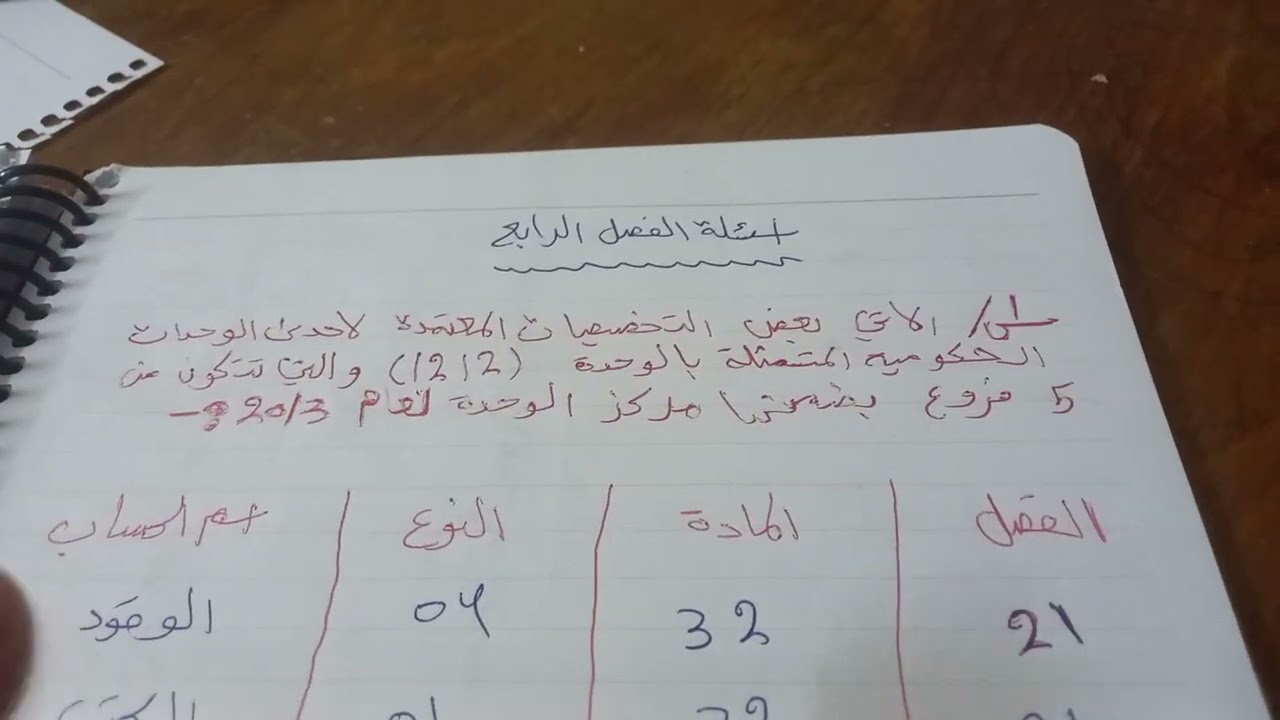 اسئلة الفصل الرابع
س1/ الاتي بعض التخصيصات المعتمدة لاحدى الوحدات
الحكومية المتمثلة بالوحدة (1212) والتي تتكون من
5 فروع بضمنها مركز الوحدة لعام 2013 :-
الفصل المادة النوع اسم الحساب
21 32 04 الوقود